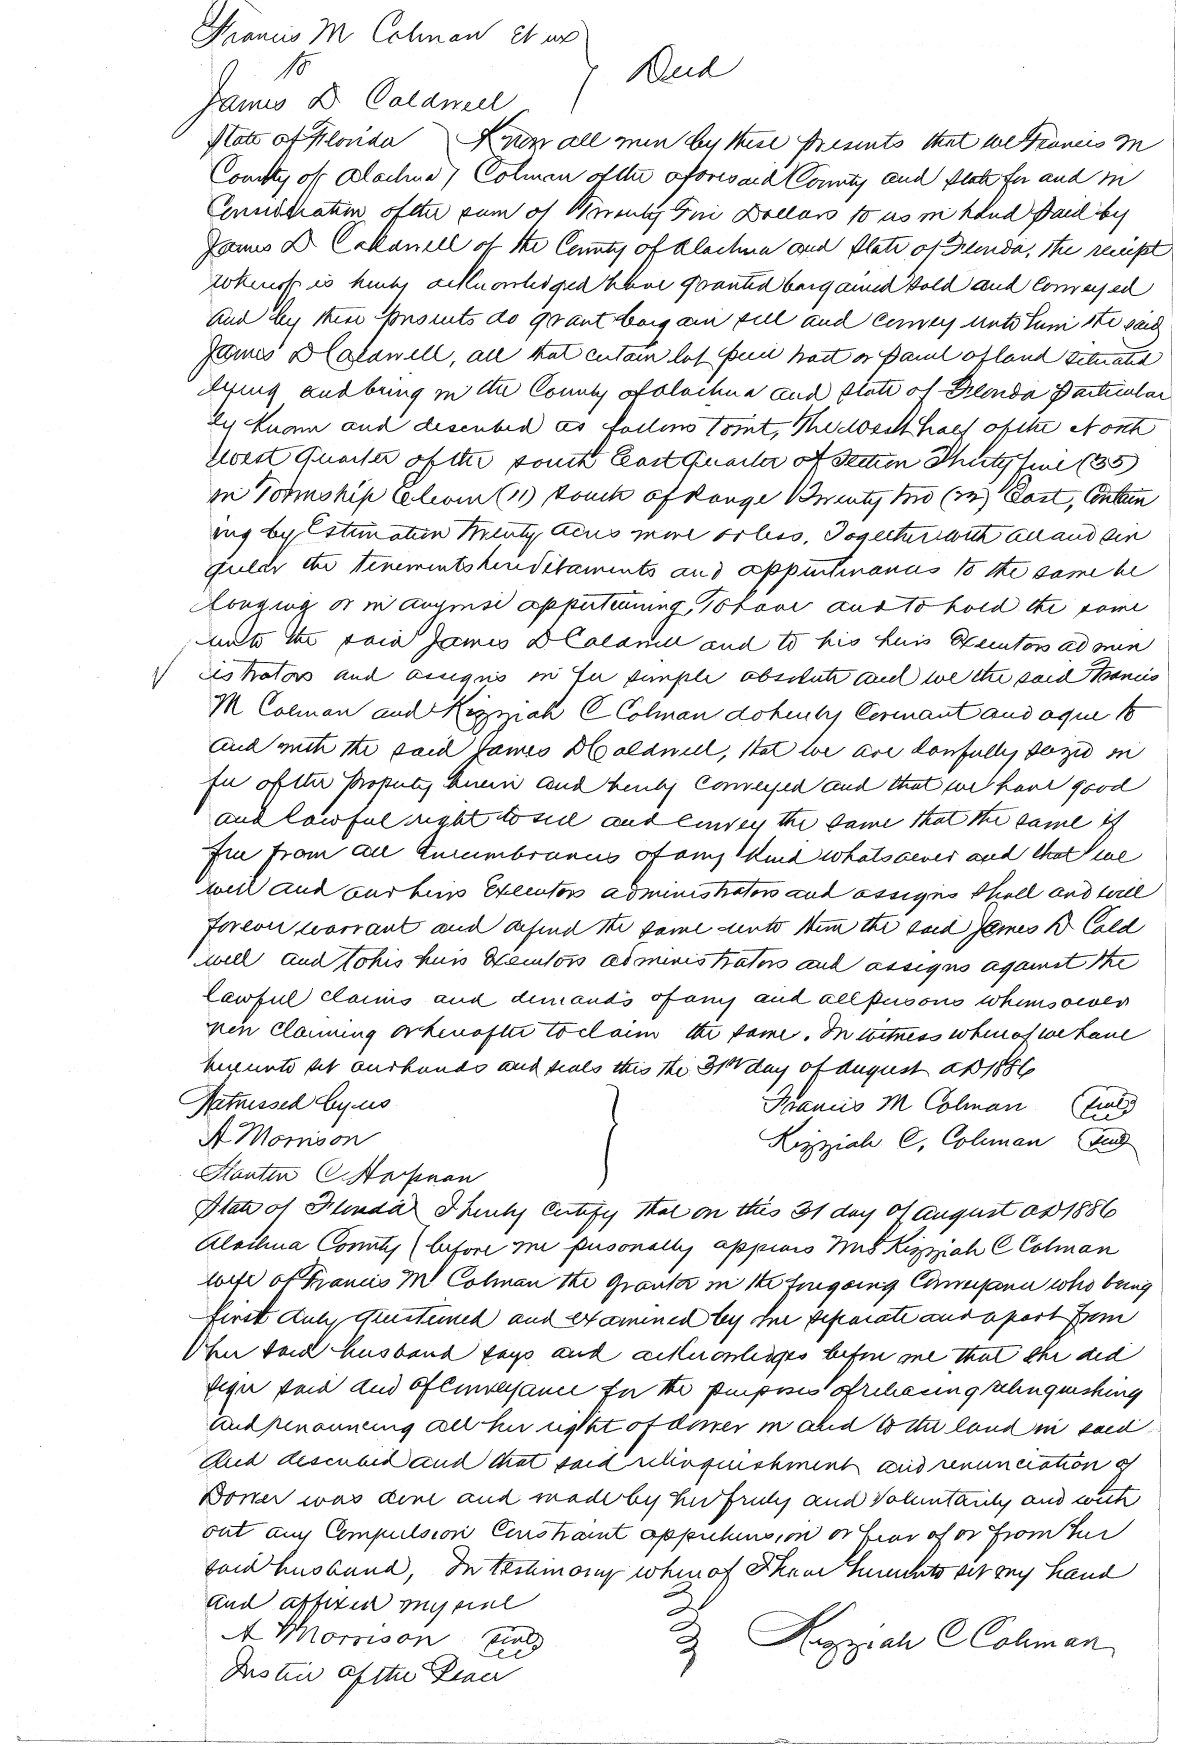 Francis M Colman et ux
to
Deed
James D Caldwell
State of Florida Know all men by these presents that we Francis M
County of Alachua Colman of the aforesaid County and State for and in
Consideration of the sum of Twenty Five Dollars to us in hand paid by
James D Caldwell of the County of Alachua and State of Florida, the receipt
whereof is hereby acknowledged have granted bargained sold and conveyed
and by these presents do grant bargain sell and convey unto him the said
James D Caldwell, all that certain lot piece tract or parcel of land situated
lying and being in the County of Alachua and State of Florida particular
ly known and described as follows towit, The West half of the North
West Quarter of the South East Quarter of Section Thirty five (35)
in Township Eleven (11) South of Range Twenty two (22) East, Contain
ing by Estimation Twenty Acres more or less, Together with all and sin
gular the tenements hereditaments and appurtinances to the same be
longing or in anywise appertaining, To have and to hold the same
unto the said James D Caldwell and to his heirs Executors admin
istrators and assigns in fee simple absolute and we the said Francis
M Colman and Kizziah C Colman do hereby Covenant and agree to
and with the said James D Caldwell, that we are lawfully seized in
fee of the property herein and hereby conveyed and that we have good
and lawful right to sell and convey the same that the same is
free from all Encumbrances of any kind whatsoever and that we
will and our heirs Executors administrators and assigns shall and will
forever warrant and defend the same unto them the said James D Cald
well and to his heirs Executors administrators and assigns against the
lawful claims and demands of any and all persons whomsoever
now claiming or hereafter to claim the same. In witness whereof we have
hereunto set our hands and seals this the 31st day of August AD 1886
Witnessed by us Francis M Colman (seal)
A Morrison Kizziah C, Colman (seal)
C.
State of Florida I hereby certify that on this 31 day of August AD 1886
Alachua County before me personally appears Mrs Kizziah C Colman
wife of Francis M Colman the grantor in the foregoing Conveyance who being
first duly questioned and examined by me separate and apart from
her said husband says and acknowledges before me that she did
sign said deed of conveyance for the purposes of releasing relinquishing
and renouncing all her right of dower in and to the land in said
deed described and that said relinquishment and renunciation of
Dower was done and made by her freely and voluntarily and with
out any Compulsion Constraint apprehension or fear of or from her
said husband, In testimony whereof I have hereunto set my hand
and affixed my seal
A Morrison (seal) Kizziah C Colman
Justice of the Peace